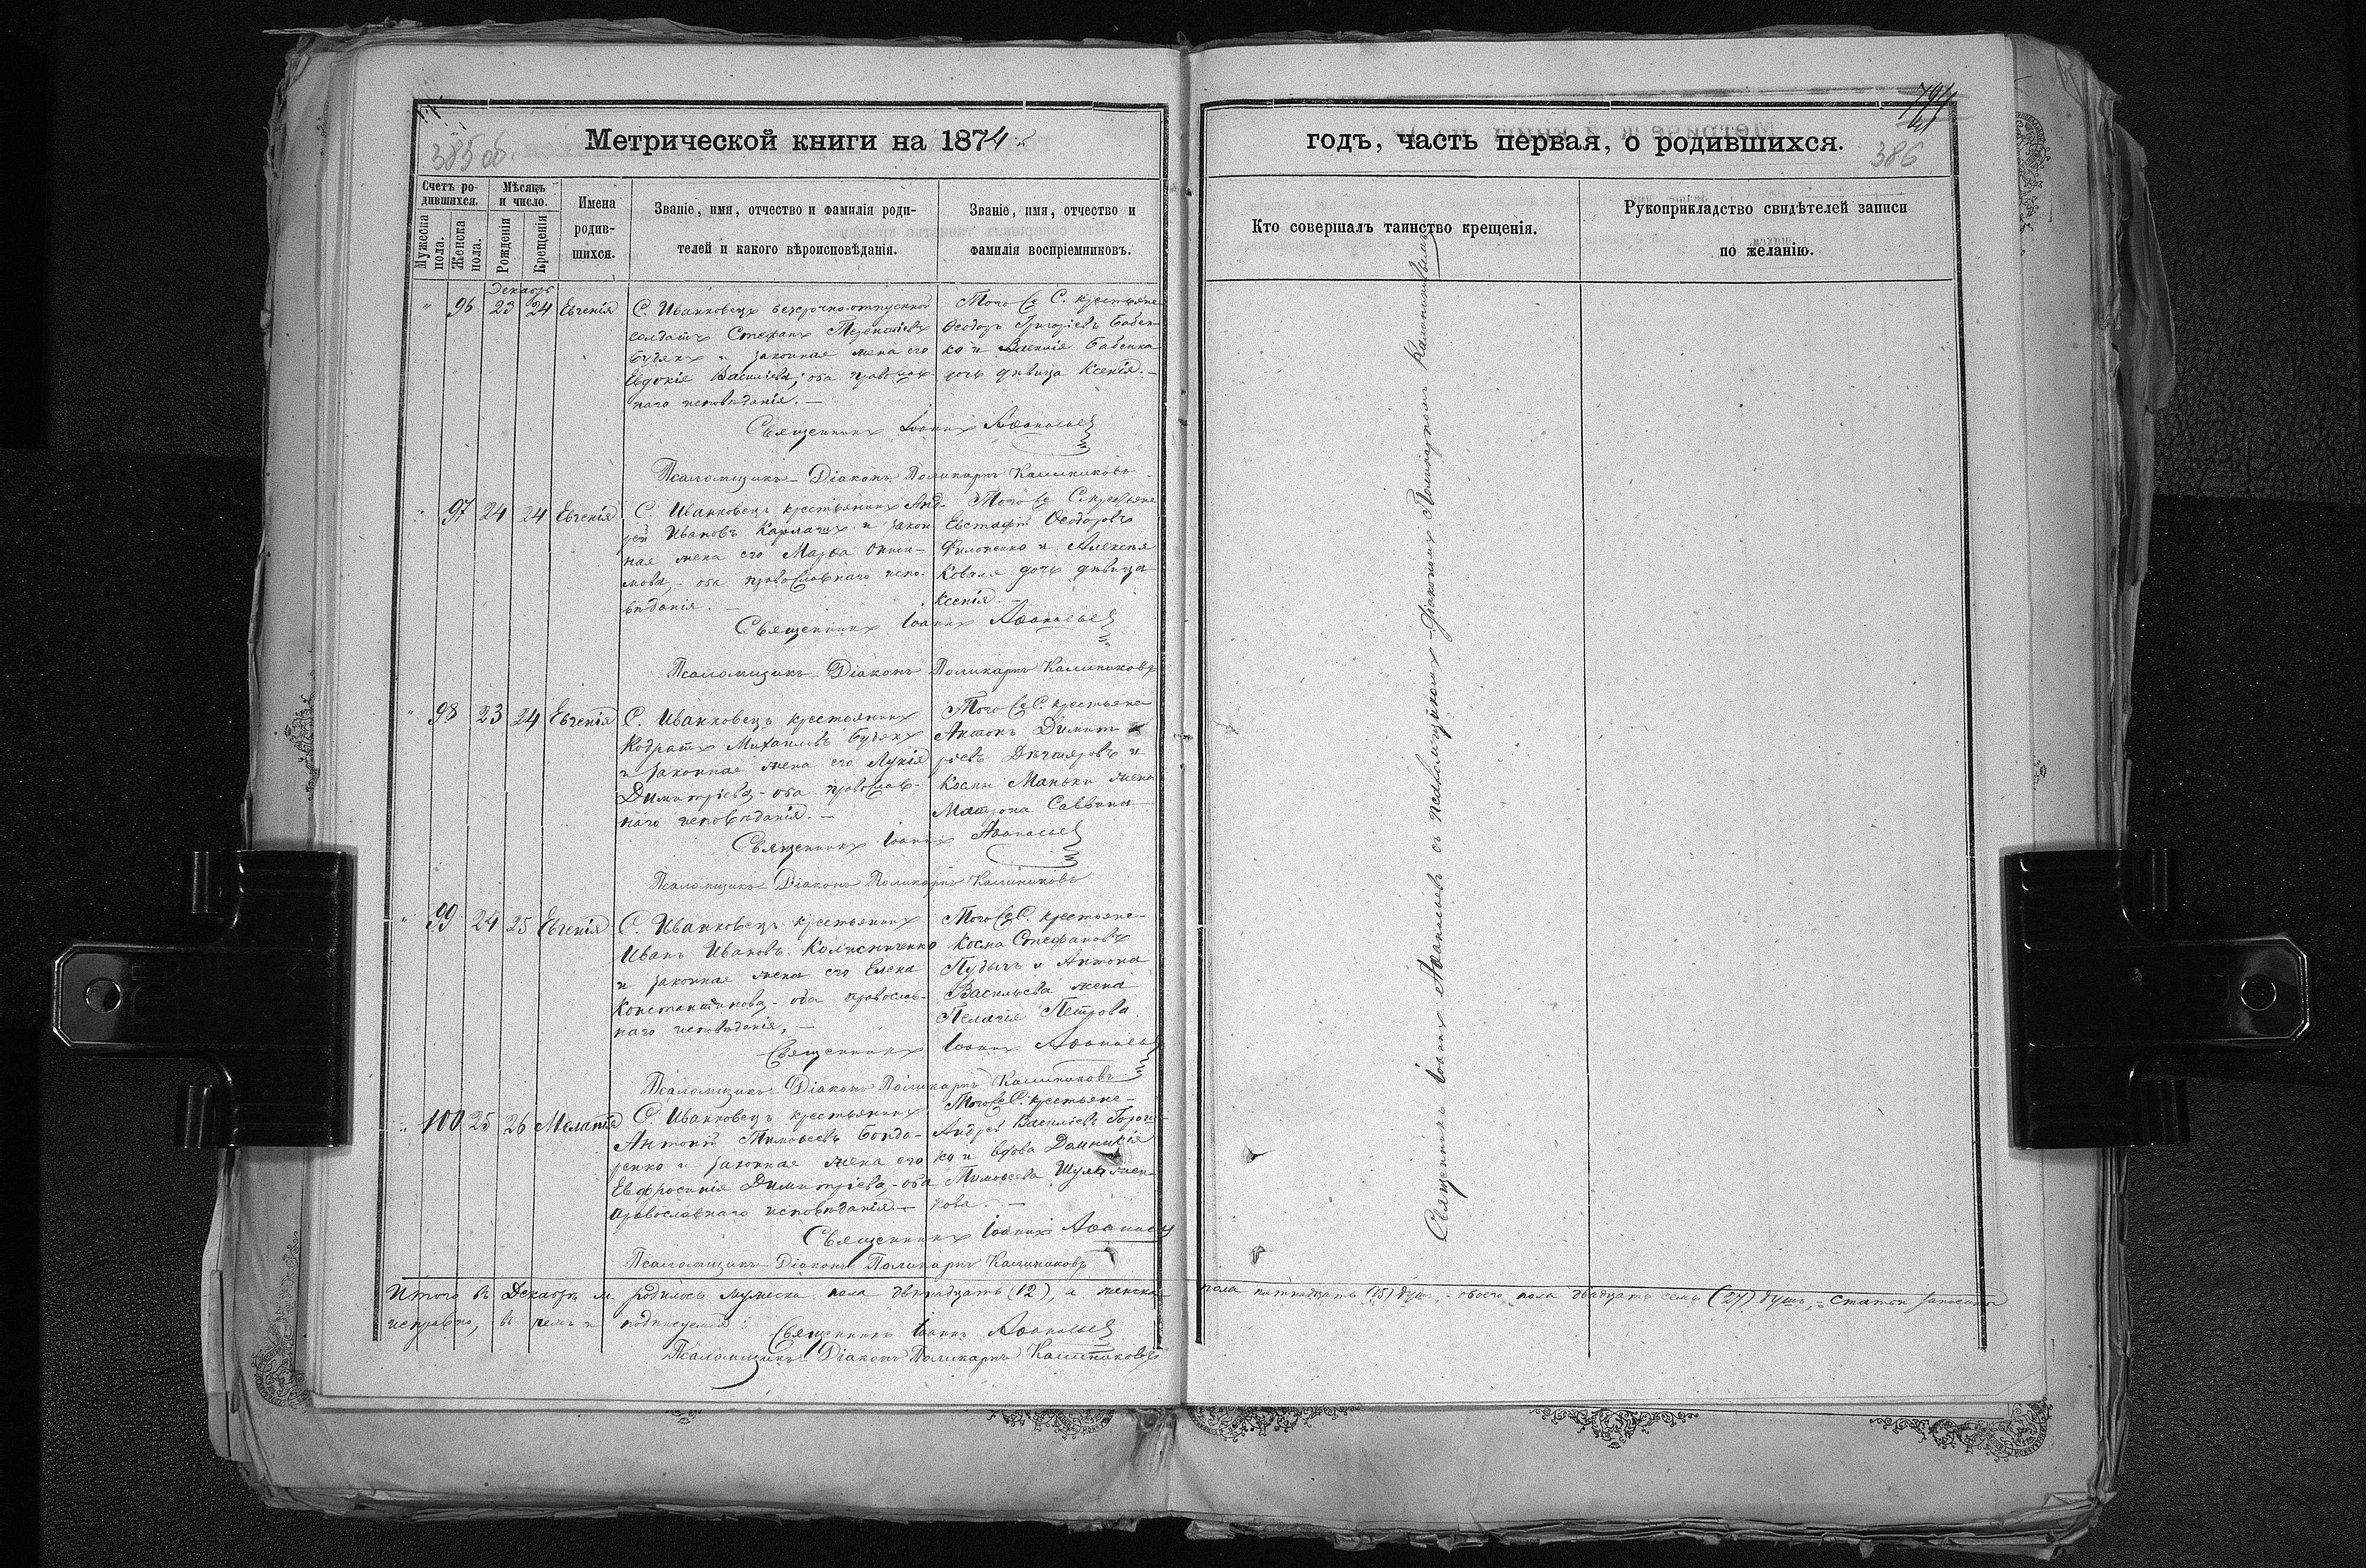 385 об.
Метрической книги на 1874
Счетъ ро-
дившихся.
Мужеска пола.
Женска пола.
Мѣсяцъ
и число.
Рожденія
Крещенія
Имена
родив-
шихся.
Званіе, имя, отчество и фамилія роди-
телей и какого вѣроисповѣданія.
Званіе, имя, отчество и
фамилія воспріемниковъ.
Декабрь
" 96 23 24 Евгенія
С. Иванковецъ безсрочноотпускной
солдатъ Стефанъ
Будякъ и законная жена его
Евдокія Василіева, оба православ-
наго исповѣданія. —
Того же С. крестьяне
Ѳеодоръ Григоріевъ Бабен-
ко и Василія Бабенка
дочь дѣвица Ксенія. —
Священникъ Іоаннъ Аѳанасьевъ
Псаломщикъ-Діаконъ Поликарпъ Калиниковъ
" 97 24 24 Евгенія
С. Иванковецъ крестьянинъ Анд-
рей Ивановъ Карпачъ и закон
ная жена его Марѳа Ониси-
мова, - оба православнаго испо-
вѣданія. —
Того же С. крестьяне
Евстафій Ѳеодоровъ
Филоненко и Алексѣя
Коваля дочь дѣвица
Ксенія. —
Священникъ Іоаннъ Аѳанасьевъ
Псаломщикъ-Діаконъ Поликарпъ Калиниковъ
" 98 23 24 Евгенія
С. Иванковецъ крестьянинъ
Кодратъ Михаиловъ Будякъ
и законная жена его Лукія
Димитріева - оба православ-
наго исповѣданія. —
Того же С. крестьяне
Антонъ Димит
ріевъ Дѣгтяровъ и
Космы Маньки жена
Матрона Саввина
Священникъ Іоаннъ Аѳанасьевъ
Псаломщикъ-Діаконъ Поликарпъ Калиниковъ
" 99 24 25 Евгенія
С. Иванковецъ крестьянинъ
Иванъ Ивановъ Колисниченко
и законная жена его Елена
Константинова, - оба православ-
наго исповѣданія, —
Того же С. крестьяне-
Косма Стефановъ
и Антона
Васильева жена
Пелагія Петрова
Священникъ Іоаннъ Аѳанасьевъ
Псаломщикъ-Діаконъ Поликарпъ Калиниковъ
" 100 25 26 Мелатія
С. Иванковецъ крестьянинъ
Антоній Тимоѳеевъ Бонда-
ренко и законная жена его
Евфросинія Димитріева, - оба
православнаго исповѣданія. —
Того же С. крестьяне-
Андрей Василіевъ
ко и вдова Домникія
Тимоѳеева
нова. —
Священникъ Іоаннъ Аѳанасьевъ
Псаломщикъ-Діаконъ Поликарпъ Калиниковъ
Итого въ Декабрѣ м. родилось мужеска пола двѣнадцать (12), а женска
исправно, въ чемъ и подписуемся:
Священникъ Іоаннъ Аѳанасьевъ
Псаломщикъ-Діаконъ Поликарпъ Калиниковъ
386
годъ, часть первая, о родившихся.
Кто совершалъ таинство крещенія.
Рукоприкладство свидѣтелей записи
по желанію.
Священникъ Іоаннъ Аѳанасьевъ съ псаломщикомъ-Діакономъ Поликарпомъ Калиниковымъ
пола пятнадцать (15) душъ, - обоего пола двадцать семь (27) душъ, - статьи записаны